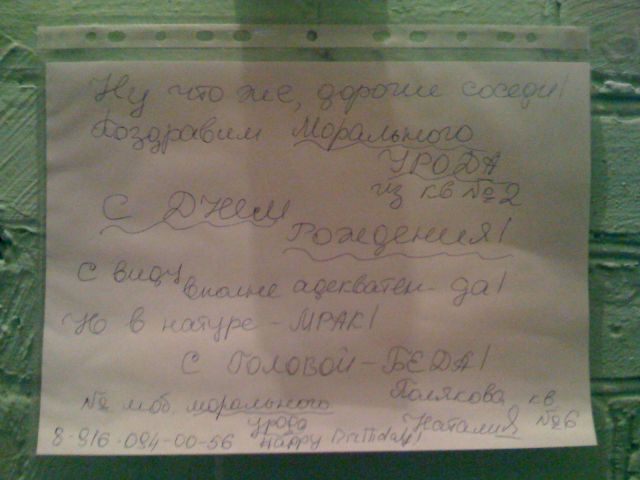 Ну что же, дорогие соседи!
Поздравим Морального
УРОДА
из кв №2
С ДНем
Рождения!
С виду вполне адекватен - да!
Но в натуре - МРАК!
С ГОЛОВОЙ - БЕДА!
№ моб морального
урода
8-916-094-00-56
Happy Birthday!
Полякова кв
Наталия №6